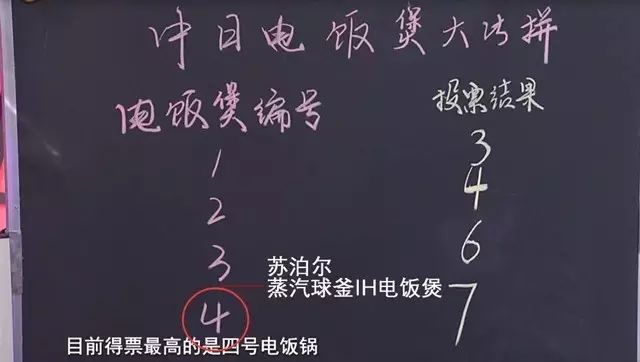 中日电饭煲大比拼
电饭煲编号 投票结果
1 3
2 4
3 6
4 7
苏泊尔
蒸汽球釜IH电饭煲
目前得票最高的是四号电饭锅